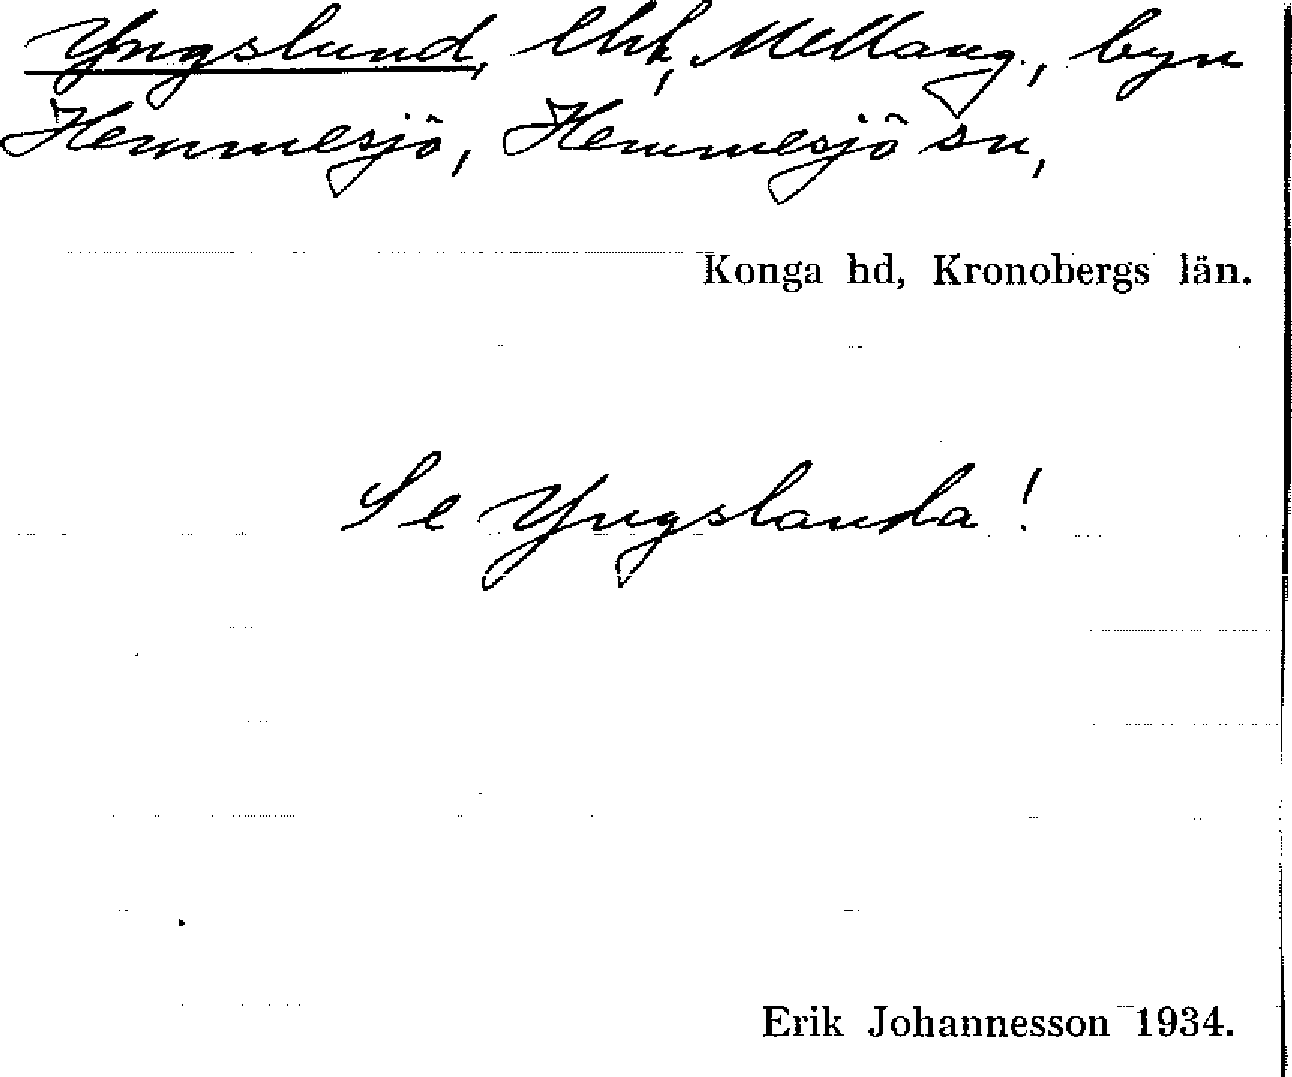 Yngslund, lht, Mellang., byn
Hemmesjö, Hemmesjö sn,
Konga hd, Kronobergs län.
Se Yngslanda!
Erik Johannesson 1934.